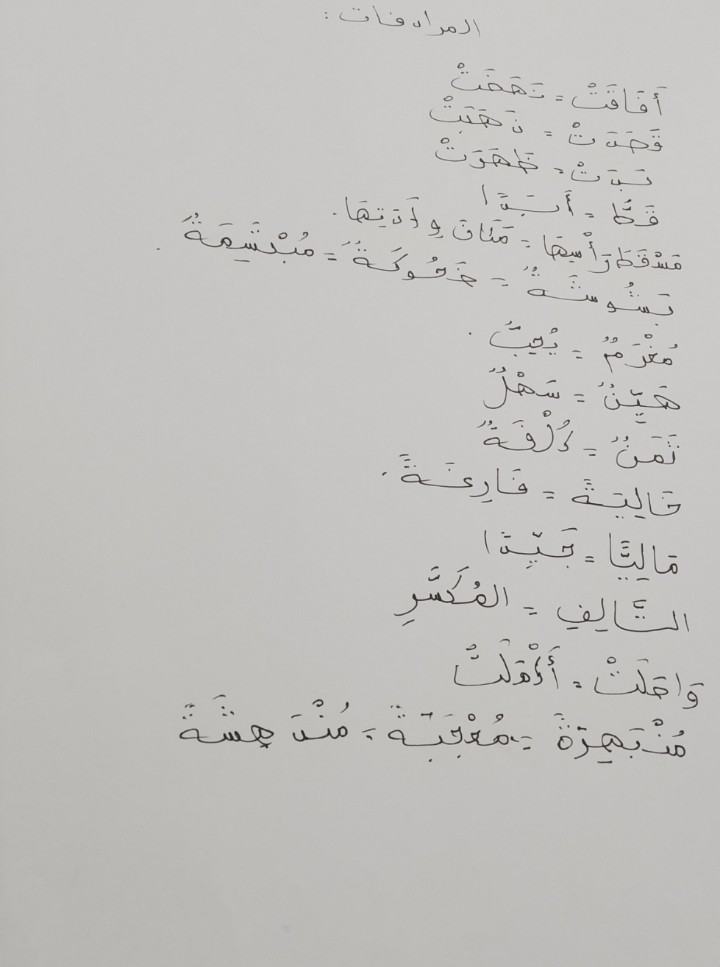 المرادفات :
أَفَاقَتْ = نَهَضَتْ
قَصَدَتْ = ذَهَبَتْ
بَدَتْ = ظَهَرَتْ
قَطُّ = أَبَدًا
مَسْقَطَ رَأْسِهَا = مَكَان وِلَادَتِهَا .
بَشُوشَةٌ = ضَحُوكَةٌ = مُبْتَسِمَةٌ .
مُغْرَمٌ = يُحِبُّ .
هَيِّنٌ = سَهْلٌ
ثَمَنٌ = كُلْفَةٌ
خَالِيَةً = فَارِغَةً .
مَالِيًّا = جَيِّدًا
التَّالِفِ = المُكَسَّرِ
وَاصَلَتْ = أَكْمَلَتْ
مُنْبَهِرَةً = مُعْجَبَةً = مُنْدَهِشَةً